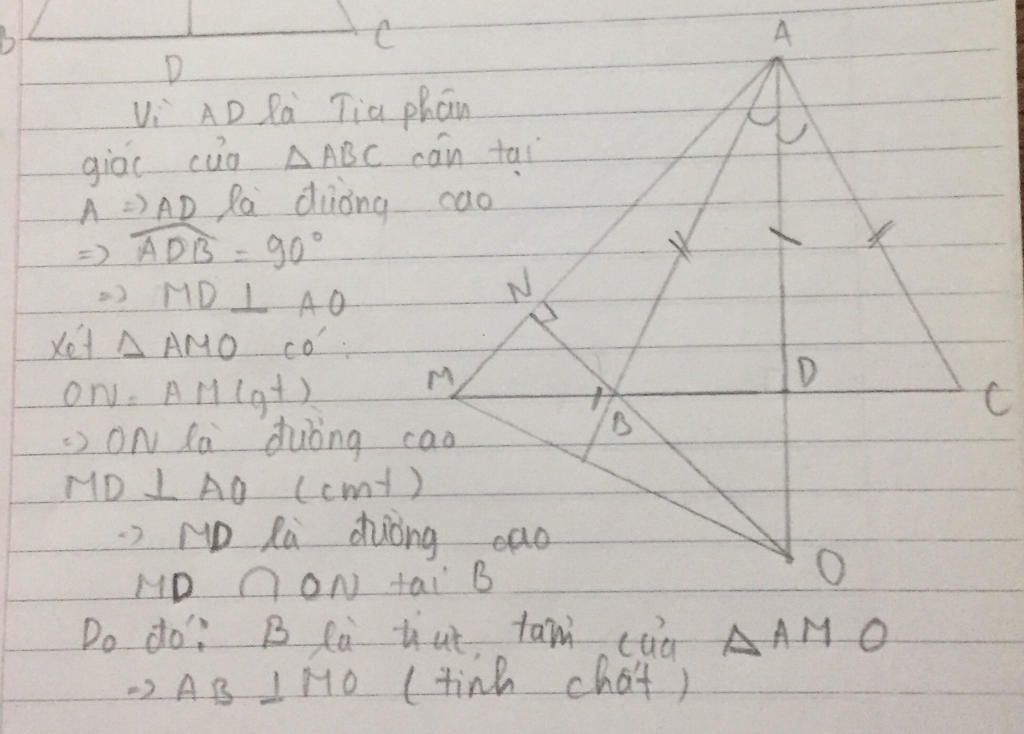 B
C
D
A
Vì AD là Tia phân
giác của △ABC cân tại
A => AD là đường cao
=> ADB = 90°
=> MD ⊥ AO
Xét △AMO có:
ON = AM (gt)
=> ON là đường cao
MD ⊥ AO (cmt)
=> MD là đường cao
MD ∩ ON tại B
Do đó: B là trực tâm của △AMO
=> AB ⊥ MO (tính chất)
N
M
D
C
B
O